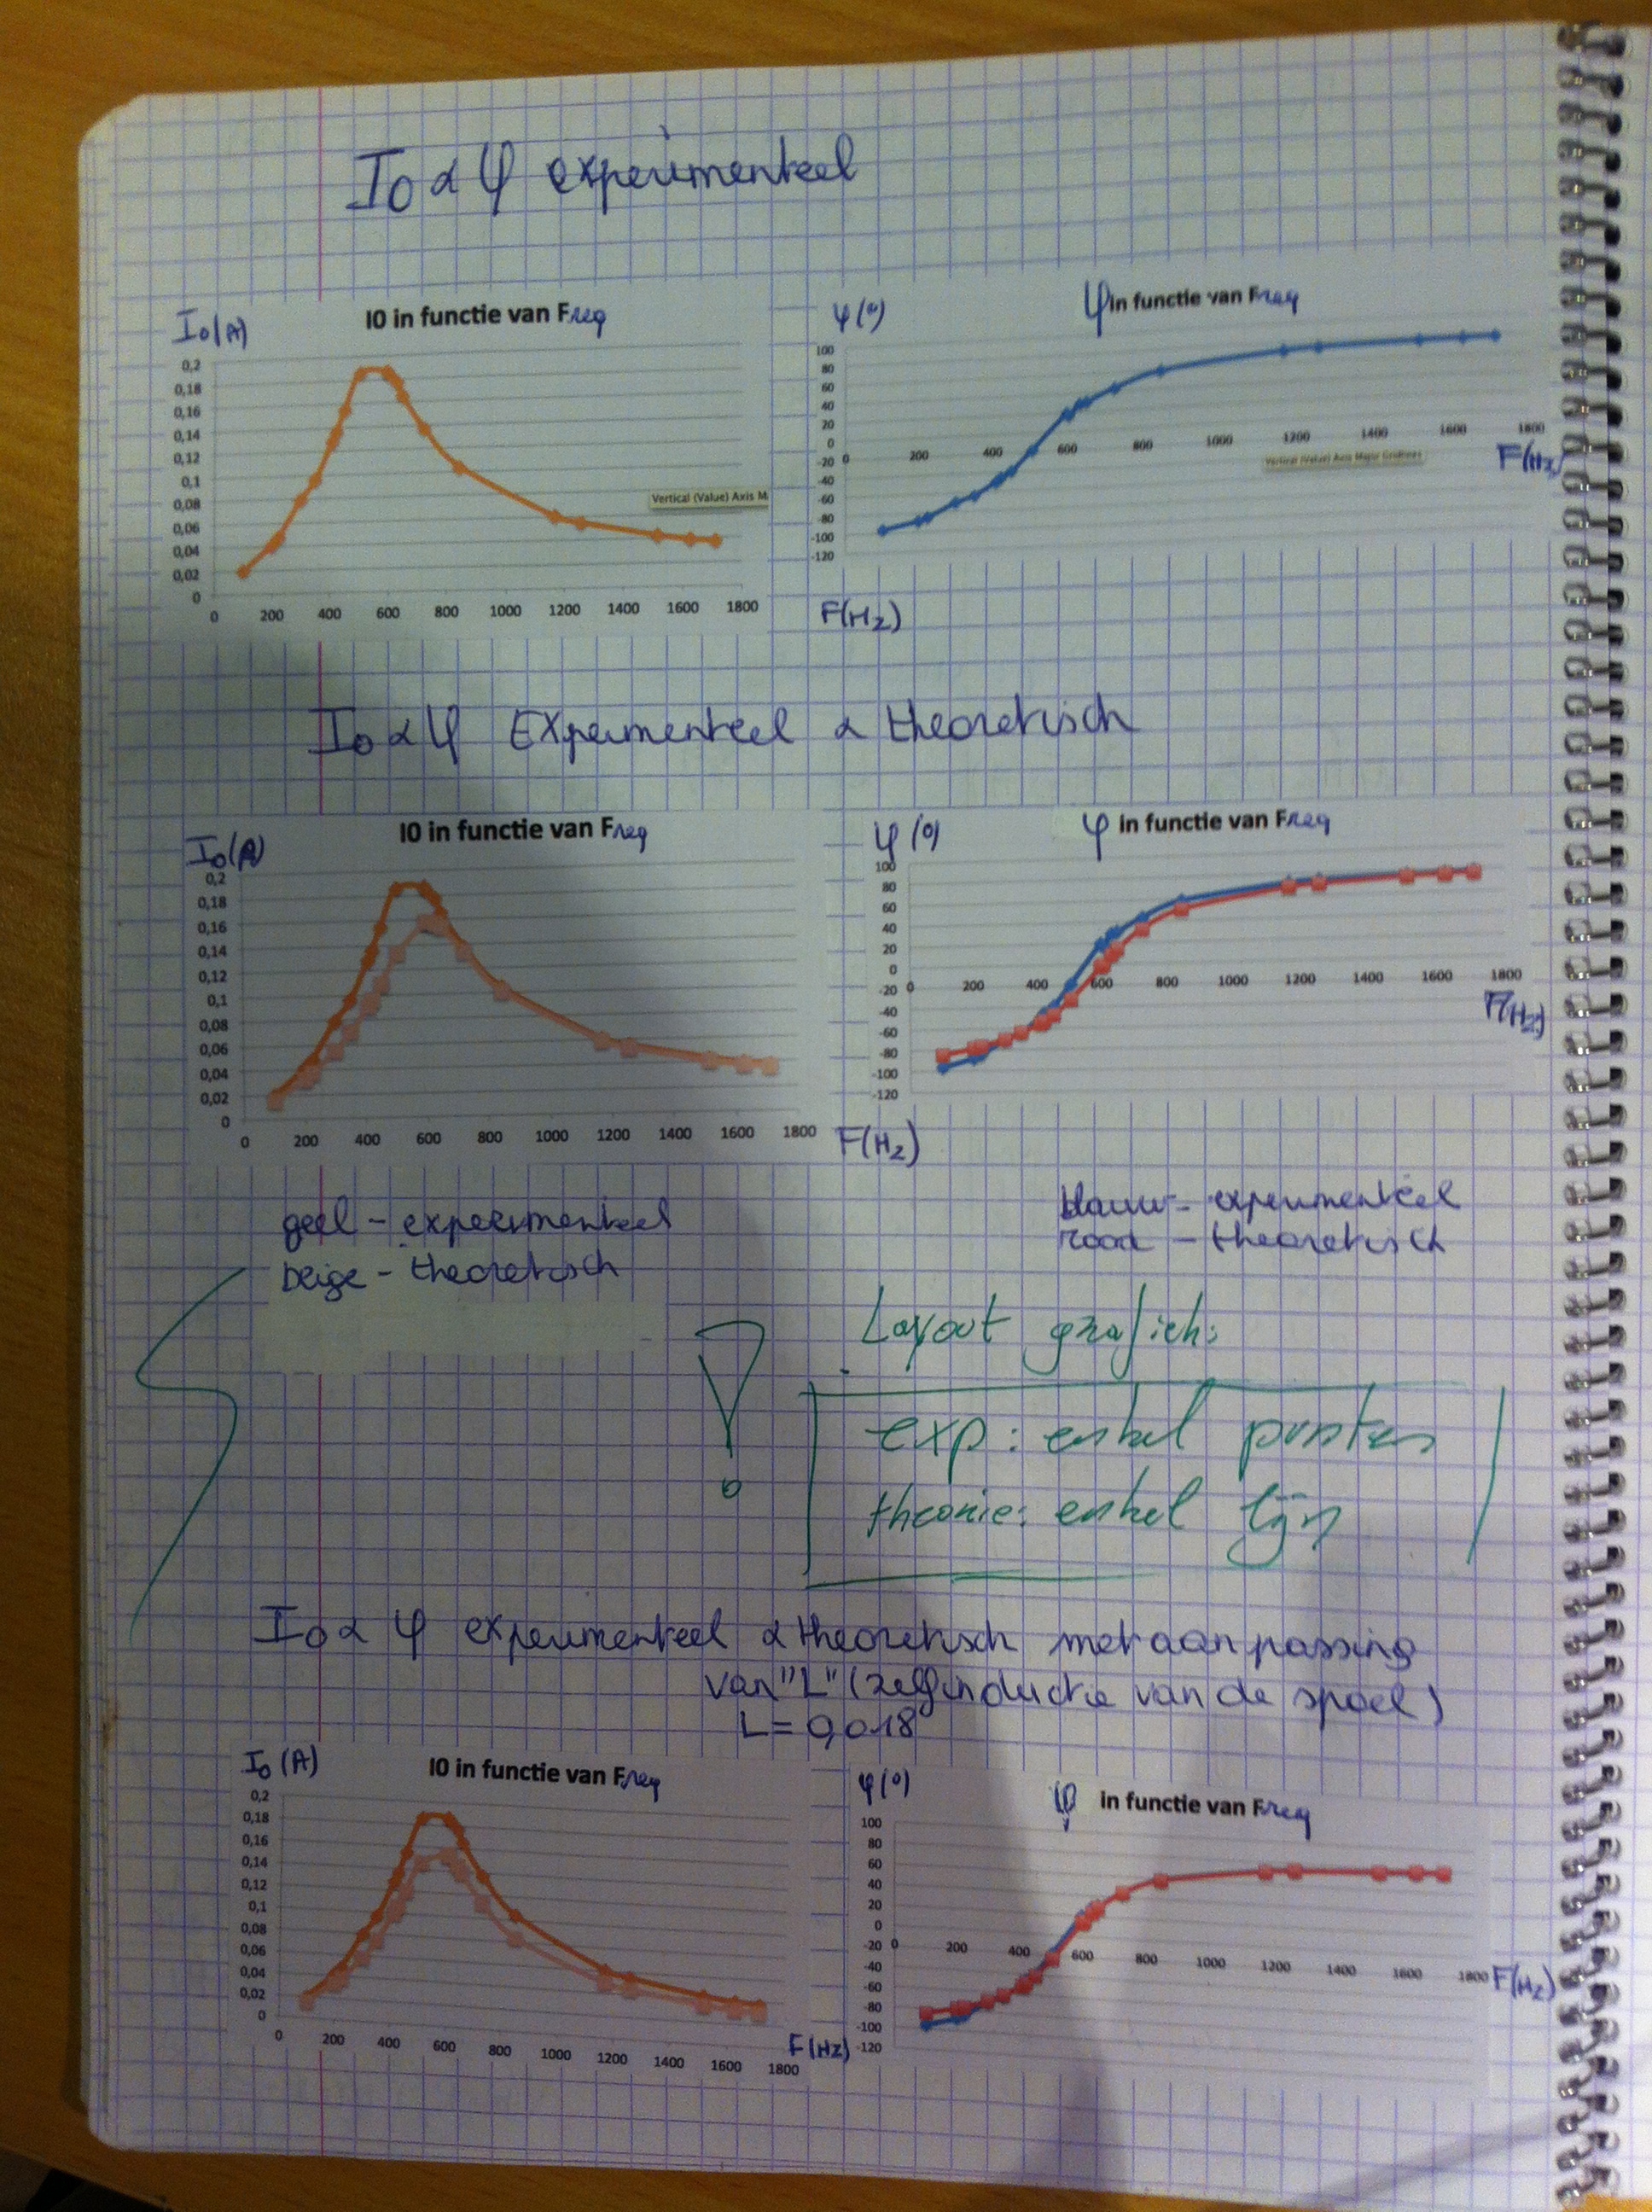 I0 α φ experimenteel
I0 (A)
I0 in functie van Freq
0,2
0,18
0,16
0,14
0,12
0,1
0,08
0,06
0,04
0,02
0
0 200 400 600 800 1000 1200 1400 1600 1800
Vertical (Value) Axis M
F(Hz)
φ (°)
φ in functie van Freq
100
80
60
40
20
0
-20
-40
-60
-80
-100
-120
0 200 400 600 800 1000 1200 1400 1600 1800
Vertical (Value) Axis Major Gridlines
F(Hz)
I0 α φ Experimenteel α theoretisch
I0 (A)
I0 in functie van Freq
0,2
0,18
0,16
0,14
0,12
0,1
0,08
0,06
0,04
0,02
0
0 200 400 600 800 1000 1200 1400 1600 1800
F(Hz)
φ (°)
φ in functie van Freq
100
80
60
40
20
0
-20
-40
-60
-80
-100
-120
0 200 400 600 800 1000 1200 1400 1600 1800
F(Hz)
geel - experimenteel
beige - theoretisch
blauw - experimenteel
rood - theoretisch
! Layout grafiek:
exp: enkel punten
theorie: enkel lijn
I0 α φ experimenteel α theoretisch met aanpassing
van "L" (zelfinductie van de spoel)
L = 0,018
I0 (A)
I0 in functie van Freq
0,2
0,18
0,16
0,14
0,12
0,1
0,08
0,06
0,04
0,02
0
0 200 400 600 800 1000 1200 1400 1600 1800
F(Hz)
φ (°)
φ in functie van Freq
100
80
60
40
20
0
-20
-40
-60
-80
-100
-120
0 200 400 600 800 1000 1200 1400 1600 1800
F(Hz)